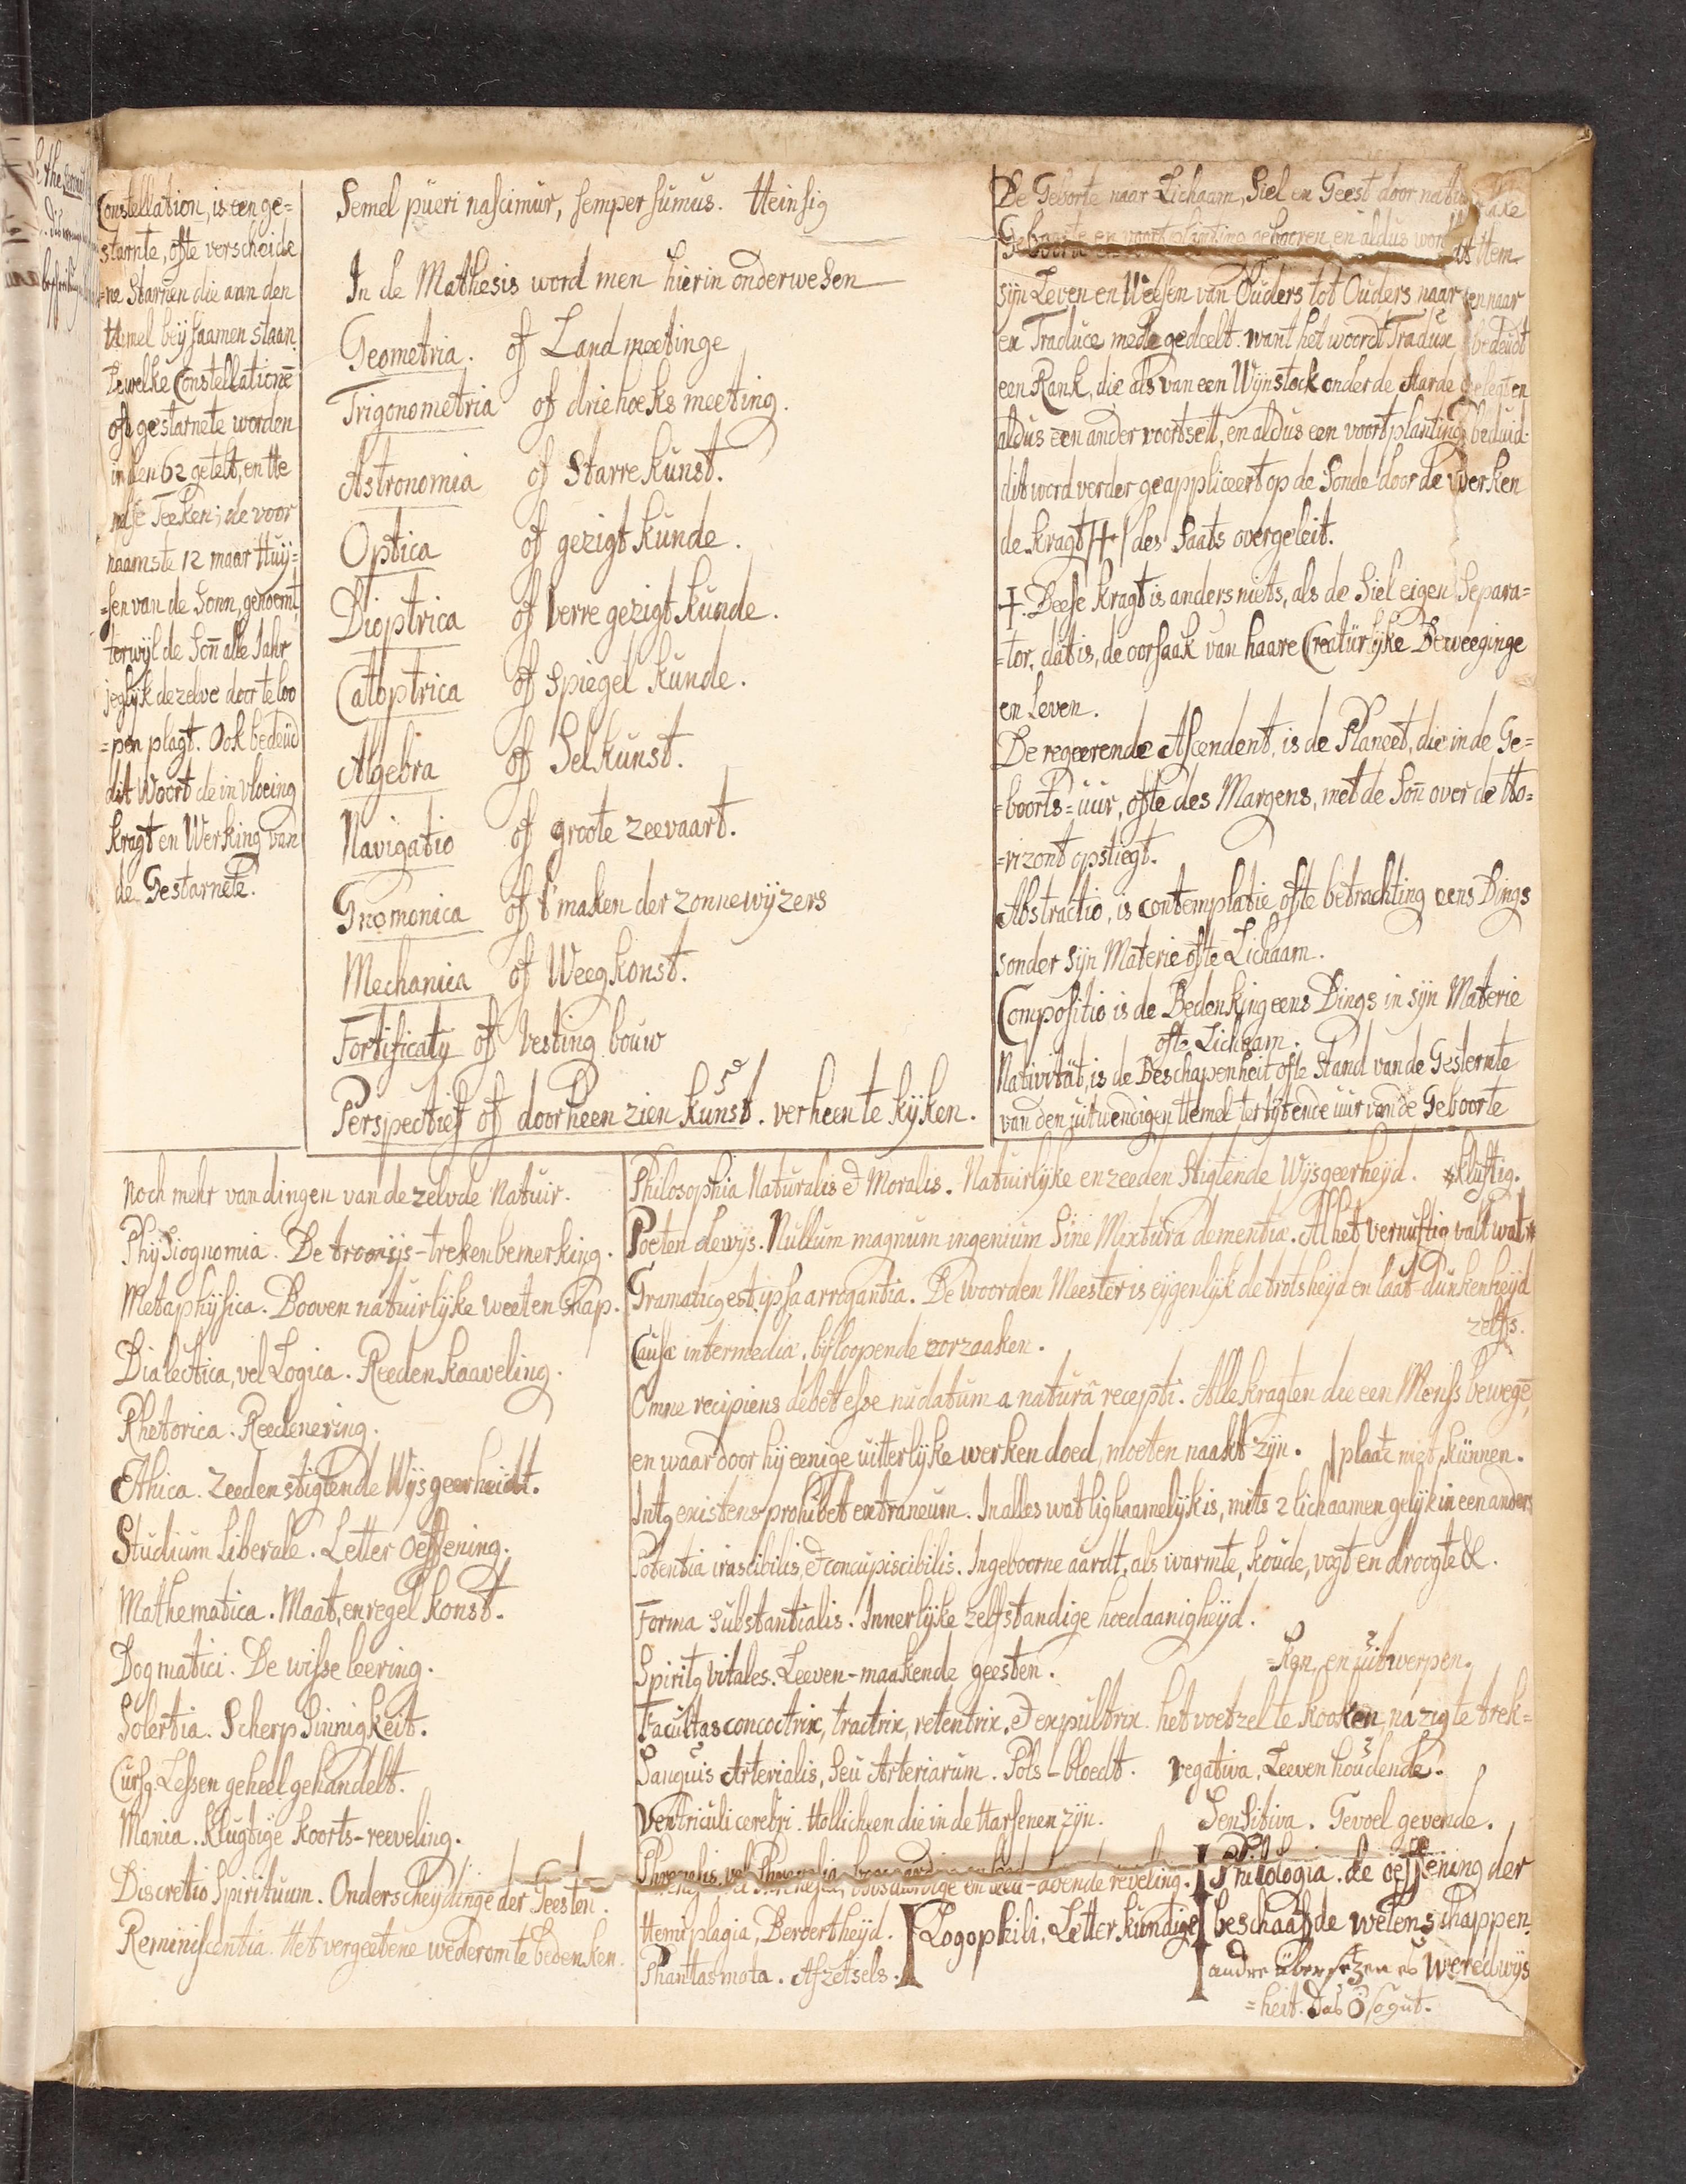 Constellation, is een ge=
starnte, ofte verscheide
=ne Starnen die aan den
Hemel beÿ saamen staan.
Dewelke Constellationē
oft gestarnete worden
in den 62 getelt, en He
mse Teeken; de voor
naamste 12 maar Huÿ=
=sen van de Sonn, genoemt,
terwijl de Soñ alle Jahr
jeglÿk dezelve door te loo
=pen plagt. Ook bedeüd
dit Woort de in vloeing
kragt en Werking van
de Gestarnete.
Semel püeri nascimur, semper sumus. Heinsiꝯ
In de Mathesis word men hierin onderwesen
Geometria. of Landmeetinge
Trigonometria of driehoeks meeting.
Astronomia of Starre kunst.
Optica of gezigt kunde.
Dioptrica of verre gezigt kunde.
Catoptrica of Spiegel kunde.
Algebra of Selkunst.
Navigatio of groote zeevaart.
Gnomonica of t' maken der zonnewÿzers
Mechanica of Weegkonst.
Fortificaty of Vesting bouw
Perspectief of doorheen zien kunst. verheen te kÿken.
De Geborte naar Lichaam, Siel en Geest door
sijn Leven en Weesen van Ouders tot Ouders naar
ex Traduce mede gedeelt. want het woord Tradux bedeudt
een Rank, die als van een Wÿnstock onder de Aarde gelegt en
aldus een ander voortsett, en aldus een voortplanting beduid.
dit word verder geappliceert op de Sonde door de Werken
de kragt /✝/ des Saats overgeleit.
✝. Deese kragt is anders niets, als de Siel eigen Separa=
=tor, dat is, de oorsaak van haare Creatürlÿke Beweeginge
en Leven.
De regeerende Ascendent, is de Planeet, die in de Ge=
=boorts=uur, ofte des Margens, met de Soñ over de Ho=
=rizont opstiegt.
Abstractio, is contemplatie ofte betrachting eens Dings
sonder sijn Materie ofte Lichaam.
Compositio is de Bedenking eens Dings in sijn Materie
ofte Lichaam.
Nativität, is de Beschapenheit ofte Stand van de Gesternte
van den uitwendigen Hemel ter tÿt ende uur van de Geboorte
Noch mehr van dingen van de zelvde Natuir.
Physiognomia. De tronijs-treken bemerking.
Metaphÿsica. Booven natuirlÿke weetenschap.
Dialectica, vel Logica. Reeden kaaveling.
Rhetorica. Reedenering.
Ethica. Zeeden stigtende Wÿsgeerheidt.
Studium Liberale. Letter Oeffening.
Mathematica. Maat, en regel konst.
Dogmatici. De wisse leering.
Solertia. Scherp Sinnigkeit.
Cursꝯ. Lessen geheel gehandelt.
Mania. Klugtige koorts-reeveling.
Discretio Spirituum. Onderscheÿdinge der Geesten.
Reminiscentia. Het vergeetene wederom te bedenken.
Philosophia Naturalis & Moralis. Natuirlÿke en zeeden Stigtende Wÿsgeerheÿd. *kluftig.
Poeten dewÿs. Nullum magnum ingenium Sine Mixtura dementiæ. Al het vernuftig valt wat *
Gramaticꝯ est ipsa arrogantia. De woorden Meester is eÿgenlÿk de trotsheÿd en laat-dunkenheÿd
zelfs.
Causæ intermediæ. bÿloopende oorzaaken.
Omne recipiens debet esse nudatum a naturâ recepti. Alle kragten die een Menss bewegē,
en waar door hÿ eenige uitterlÿke werken doed, moeten naakt zÿn. | plaatz niet künnen.
Intꝯ existens prohibet extraneum. In alles wat lighaamelÿk is, mits 2 lichaamen gelÿk in een anders
Potentia irascibilis, & concupiscibilis. Ingeboorne aardt, als warmte, koude, vogt en droogte &.
Forma Substantialis. Innerlÿke zelfstandige hoedaanigheÿd.
Spiritꝯ Vitales. Leeven-maakende geesten. =ken, en uitwerpen.
Facultas concoctrix, tractrix, retentrix, & expultrix. het voetzel te kooken, na zig te trek=
Sanguis Arterialis, Seu Arteriarum. Pols-bloedt. vegativa, Leeven houdende.
Ventriculi cerebri. Hollicheen die in de Harsenen zÿn. Sensitiva. Gevoel gevende.
Philologia. de oeffening der
Hemiplagia, Beroertheÿd. Logophili, Letter kundige beschaafde wetenschappen.
Phantasmata. Afzetsels. andre übersetzen es Weredwÿs
=heit. Das Ó so gut.